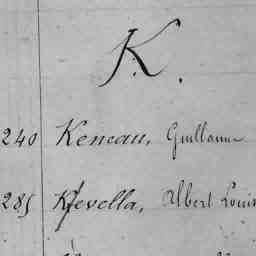 K.
240 Keneau, Guillaume
285 Kevella, Albert Louis